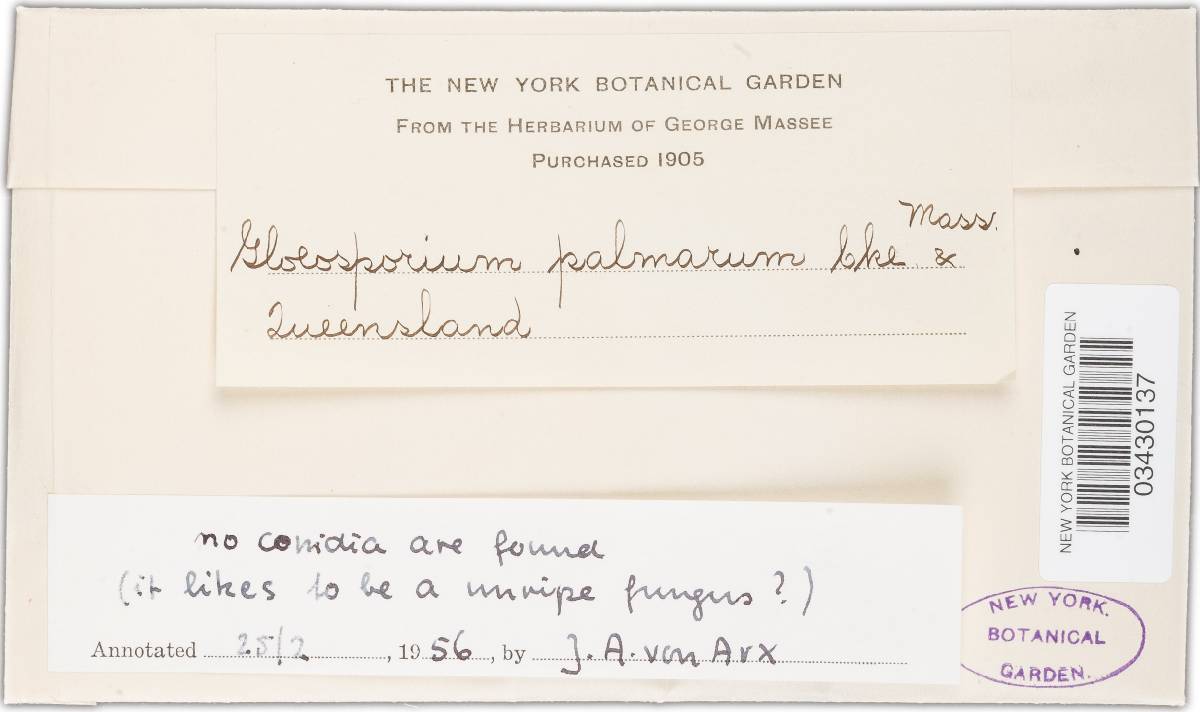 THE NEW YORK BOTANICAL GARDEN
FROM THE HERBARIUM OF GEORGE MASSEE
PURCHASED 1905
Gloeosporium palmarum Cke & Mass.
Queensland
NEW YORK BOTANICAL GARDEN
03430137
no conidia are found
(it likes to be a unripe fungus?)
Annotated 25/2, 1956, by J. A. von Arx
NEW YORK.
BOTANICAL
GARDEN.